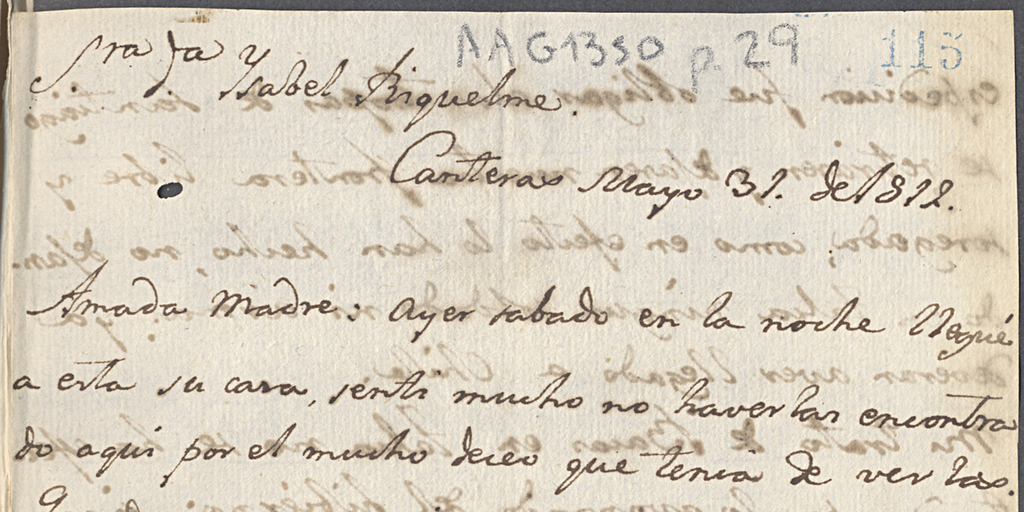 Sra Da Ysabel Riquelme.
AAG1350 p. 29
115
Canteras Mayo 31. de 1812.
Amada Madre: ayer sabado en la noche llegué
a esta su casa, senti mucho no haverlas encontra
do aqui por el mucho deceo que tenia de verlas.